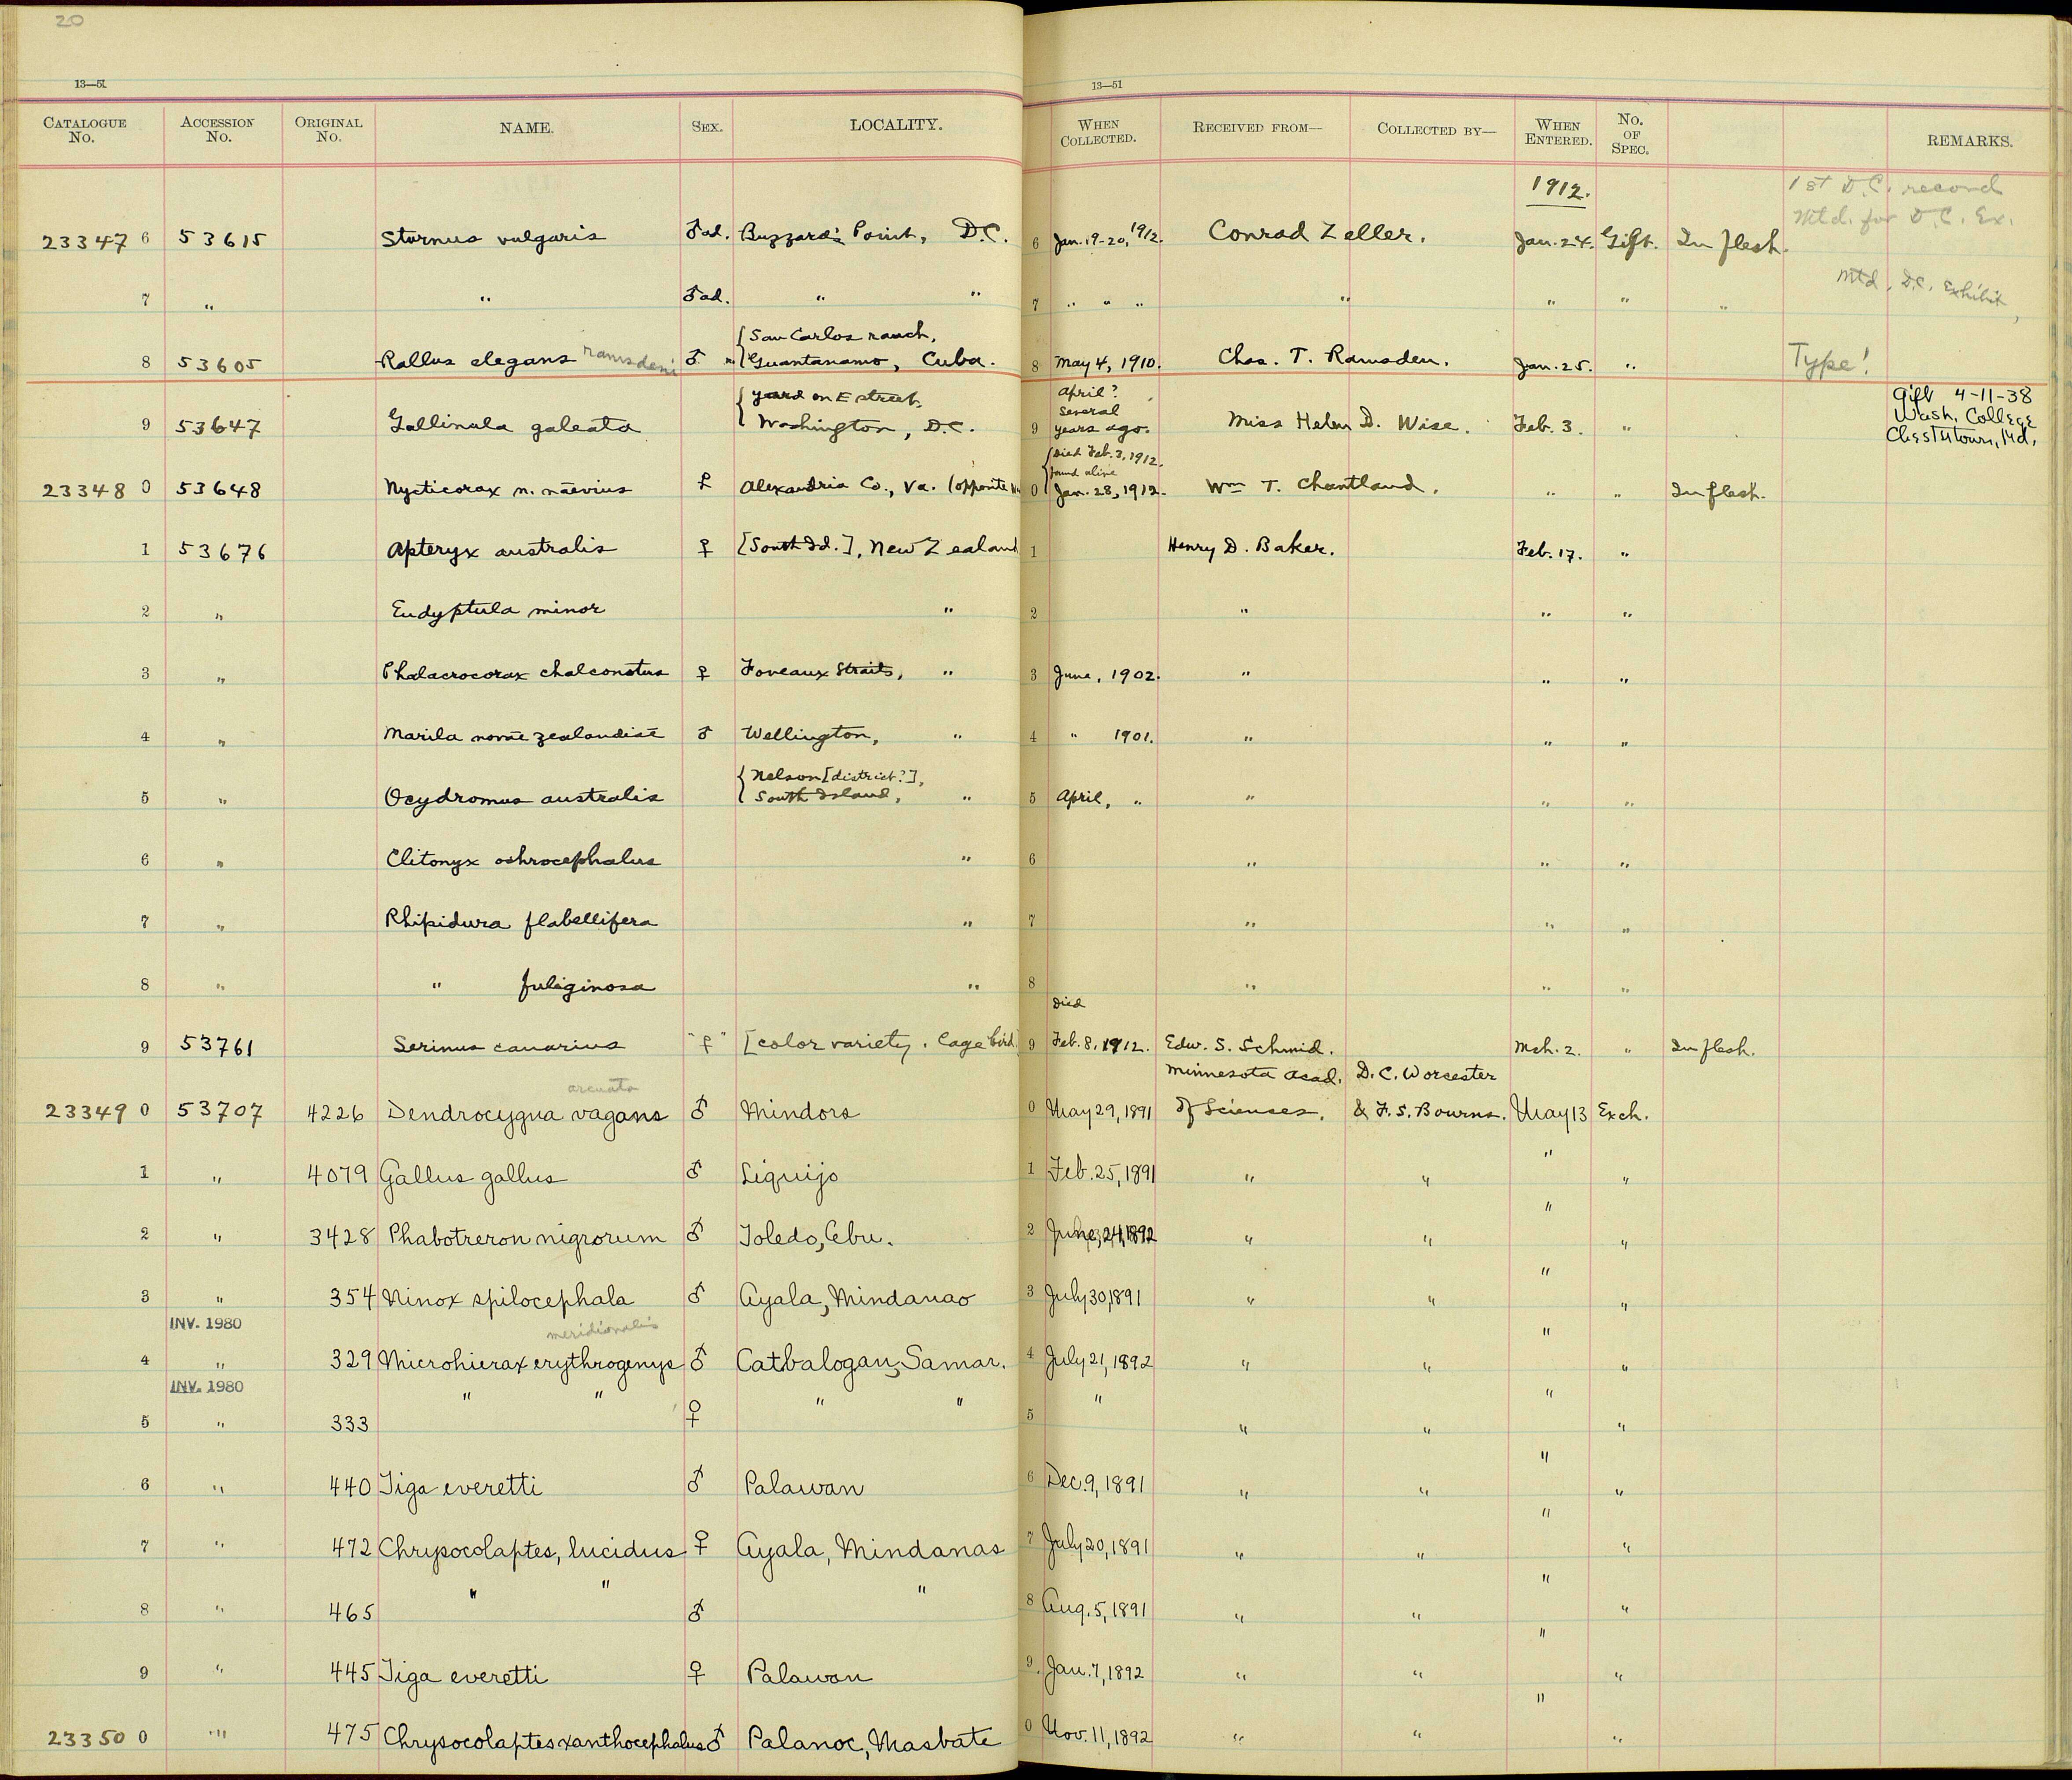 20
13—51
13—51
CATALOGUE No. ACCESSION No. ORIGINAL No. NAME. SEX. LOCALITY. WHEN COLLECTED. RECEIVED FROM— COLLECTED BY— WHEN ENTERED. No. OF SPEC. REMARKS.
1912. 1st D.C. record
Mtd. for D.C. Ex.
23347 6 53615 Sturnus vulgaris ♂ad. Buzzard's Point, D.C. 6 Jan. 19-20, 1912. Conrad Zeller. Jan. 24. Gift. In flesh.
7 " " ♂ad. " " 7 " " " " " " " Mtd. D.C. Exhibit
8 53605 Rallus elegans ramsdeni ♂ {San Carlos ranch, Guantanamo, Cuba. 8 May 4, 1910. Chas. T. Ramsden. Jan. 25. " Type!
9 53647 Gallinula galeata {yard on E street, Washington, D.C. 9 April? several years ago. Miss Helen D. Wise. Feb. 3. " Gift 4-11-38 Wash. College Chestertown, Md.
23348 0 53648 Nycticorax n. nævius ♀ Alexandria Co., Va. (opposite 0 {Died Feb. 3, 1912. found alive Jan. 28, 1912. Wm T. Chantland. " " In flesh.
1 53676 Apteryx australis ♀ [South Id.], New Zealand 1 Henry D. Baker. Feb. 17. "
2 " Eudyptula minor " 2 " " "
3 " Phalacrocorax chalconotus ♀ Foveaux Straits, " 3 June, 1902. " " "
4 " Marila novæ zealandiæ ♂ Wellington, " 4 " 1901. " " "
5 " Ocydromus australis {Nelson [district?], South Island, " 5 April, " " " "
6 " Clitonyx ochrocephalus " 6 " " "
7 " Rhipidura flabellifera " 7 " " "
8 " " fuliginosa " 8 " " "
9 53761 Serinus canarius "♀" [color variety. Cage bird. 9 Died Feb. 8, 1912. Edw. S. Schmid. Mch. 2. " In flesh.
arcuata Minnesota Acad. D. C. Worcester
23349 0 53707 4226 Dendrocygna vagans ♂ Mindoro 0 May 29, 1891 of Sciences. & F. S. Bourns. May 13 Exch.
1 " 4079 Gallus gallus ♂ Siquijo 1 Feb. 25, 1891 " " " "
2 " 3428 Phabotreron nigrorum ♂ Toledo, Cebu. 2 June, 24, 1892 " " " "
3 " 354 Ninox spilocephala ♂ Ayala, Mindanao 3 July 30, 1891 " " " "
INV. 1980 meridionalis
4 " 329 Microhierax erythrogenys ♂ Catbalogan, Samar. 4 July 21, 1892 " " " "
INV. 1980
5 " 333 " " ♀ " " 5 " " " " "
6 " 440 Tiga everetti ♂ Palawan 6 Dec. 9, 1891 " " " "
7 " 472 Chrysocolaptes, lucidus ♀ Ayala, Mindanao 7 July 20, 1891 " " " "
8 " 465 " " ♂ " 8 Aug. 5, 1891 " " " "
9 " 445 Tiga everetti ♀ Palawan 9 Jan. 7, 1892 " " " "
23350 0 " 475 Chrysocolaptes xanthocephalus ♂ Palanoc, Masbate 0 Nov. 11, 1892 " " " "